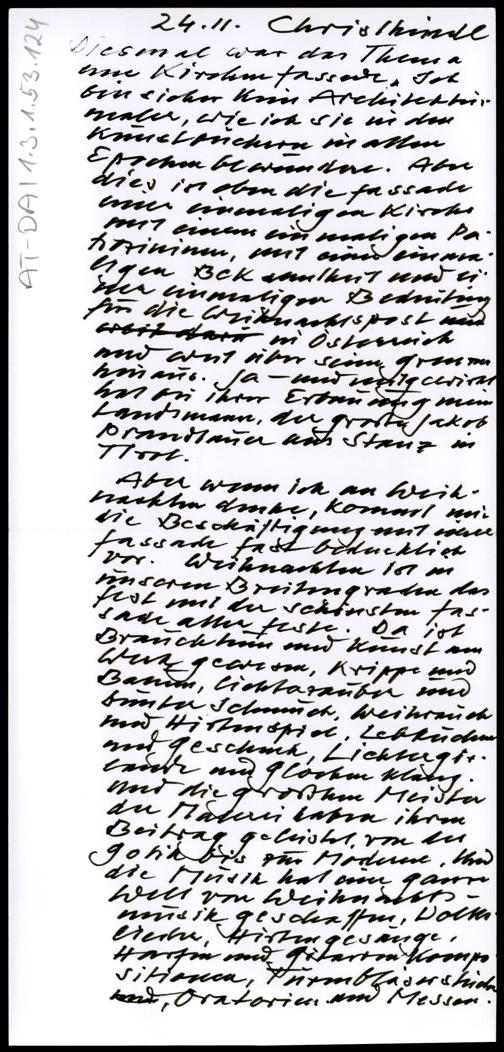 AT-DAI 1.3.1.53.124
24.11. Christkindl
Diesmal war das Thema
eine Kirchenfassade. Ich
bin sicher kein Architektur-
maler, wie ich sie in den
Kunstbüchern in allen
Epochen bewundere. Aber
dies ist eben die Fassade
einer einmaligen Kirche
mit einem einmaligen Pa-
trozinium, mit einer einma-
ligen Bekanntheit und ei-
ner einmaligen Bedeutung
für die Weihnachtspost und
weit darü in Österreich
und weit über seine Grenzen
hinaus. Ja – und mitgewirkt
hat bei ihrer Erbauung mein
Landsmann, der große Jakob
Prandtauer aus Stanz in
Tirol.
Aber wenn ich an Weih-
nachten denke, kommt mir
die Beschäftigung mit einer
Fassade fast bedenklich
vor. Weihnachten ist in
unseren Breitengraden das
Fest mit der schönsten Fas-
sade aller Feste. Da ist
Brauchtum und Kunst am
Werk gewesen, Krippe und
Baum, Lichterzauber und
bunter Schmuck, Weihrauch
und Hirtenspiel, Lebkuchen
und Geschenk, Lichtergir-
lande und Glockenklang.
Und die größten Meister
der Malerei haben ihren
Beitrag geleistet, von der
Gotik bis zur Moderne. Und
die Musik hat eine ganze
Welt von Weihnachts-
musik geschaffen, Volks-
lieder, Hirtengesänge,
Harfen und Gitarren Kompo-
sitionen, Turmbläserstücke
und, Oratorien und Messen.